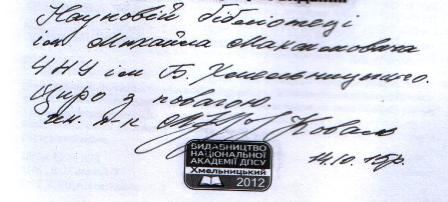 Науковій бібліотеці
ім Михайла Максимовича
ЧНУ ім Б. Хмельницького.
Щиро з повагою.
Коваль
ВИДАВНИЦТВО
НАЦІОНАЛЬНОЇ
АКАДЕМІЇ ДПСУ
Хмельницький
2012
14.10. 15р.